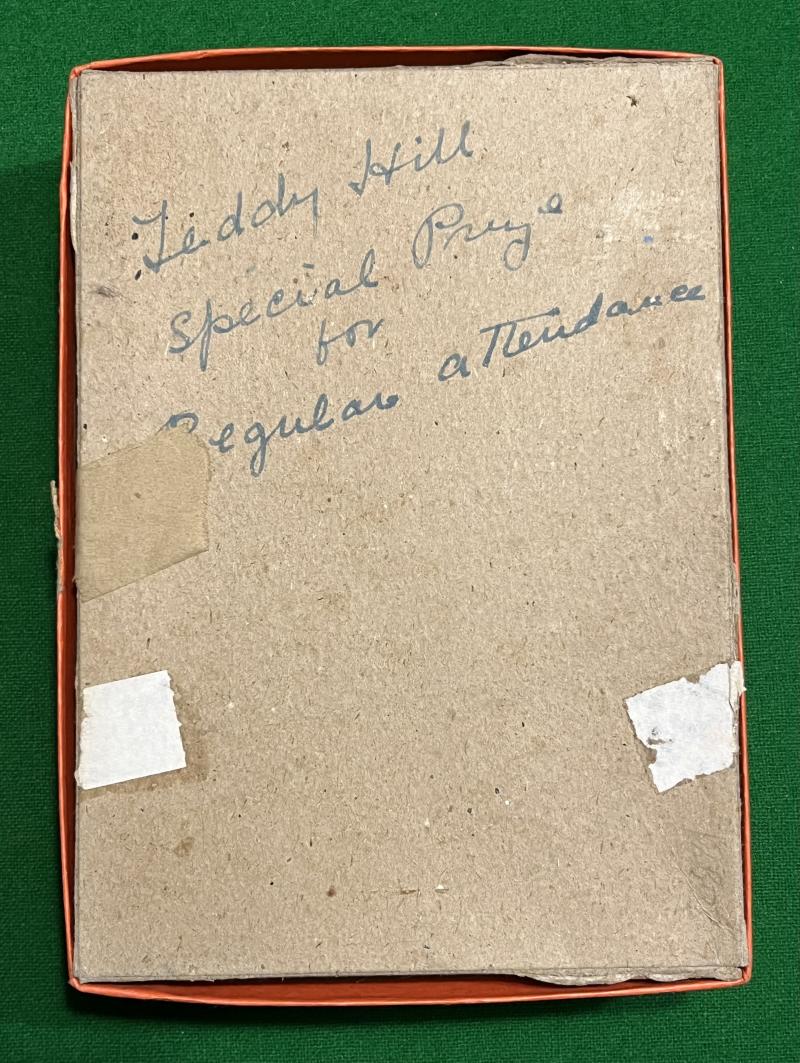 Teddy Hill
Special Prize
for
Regular attendance